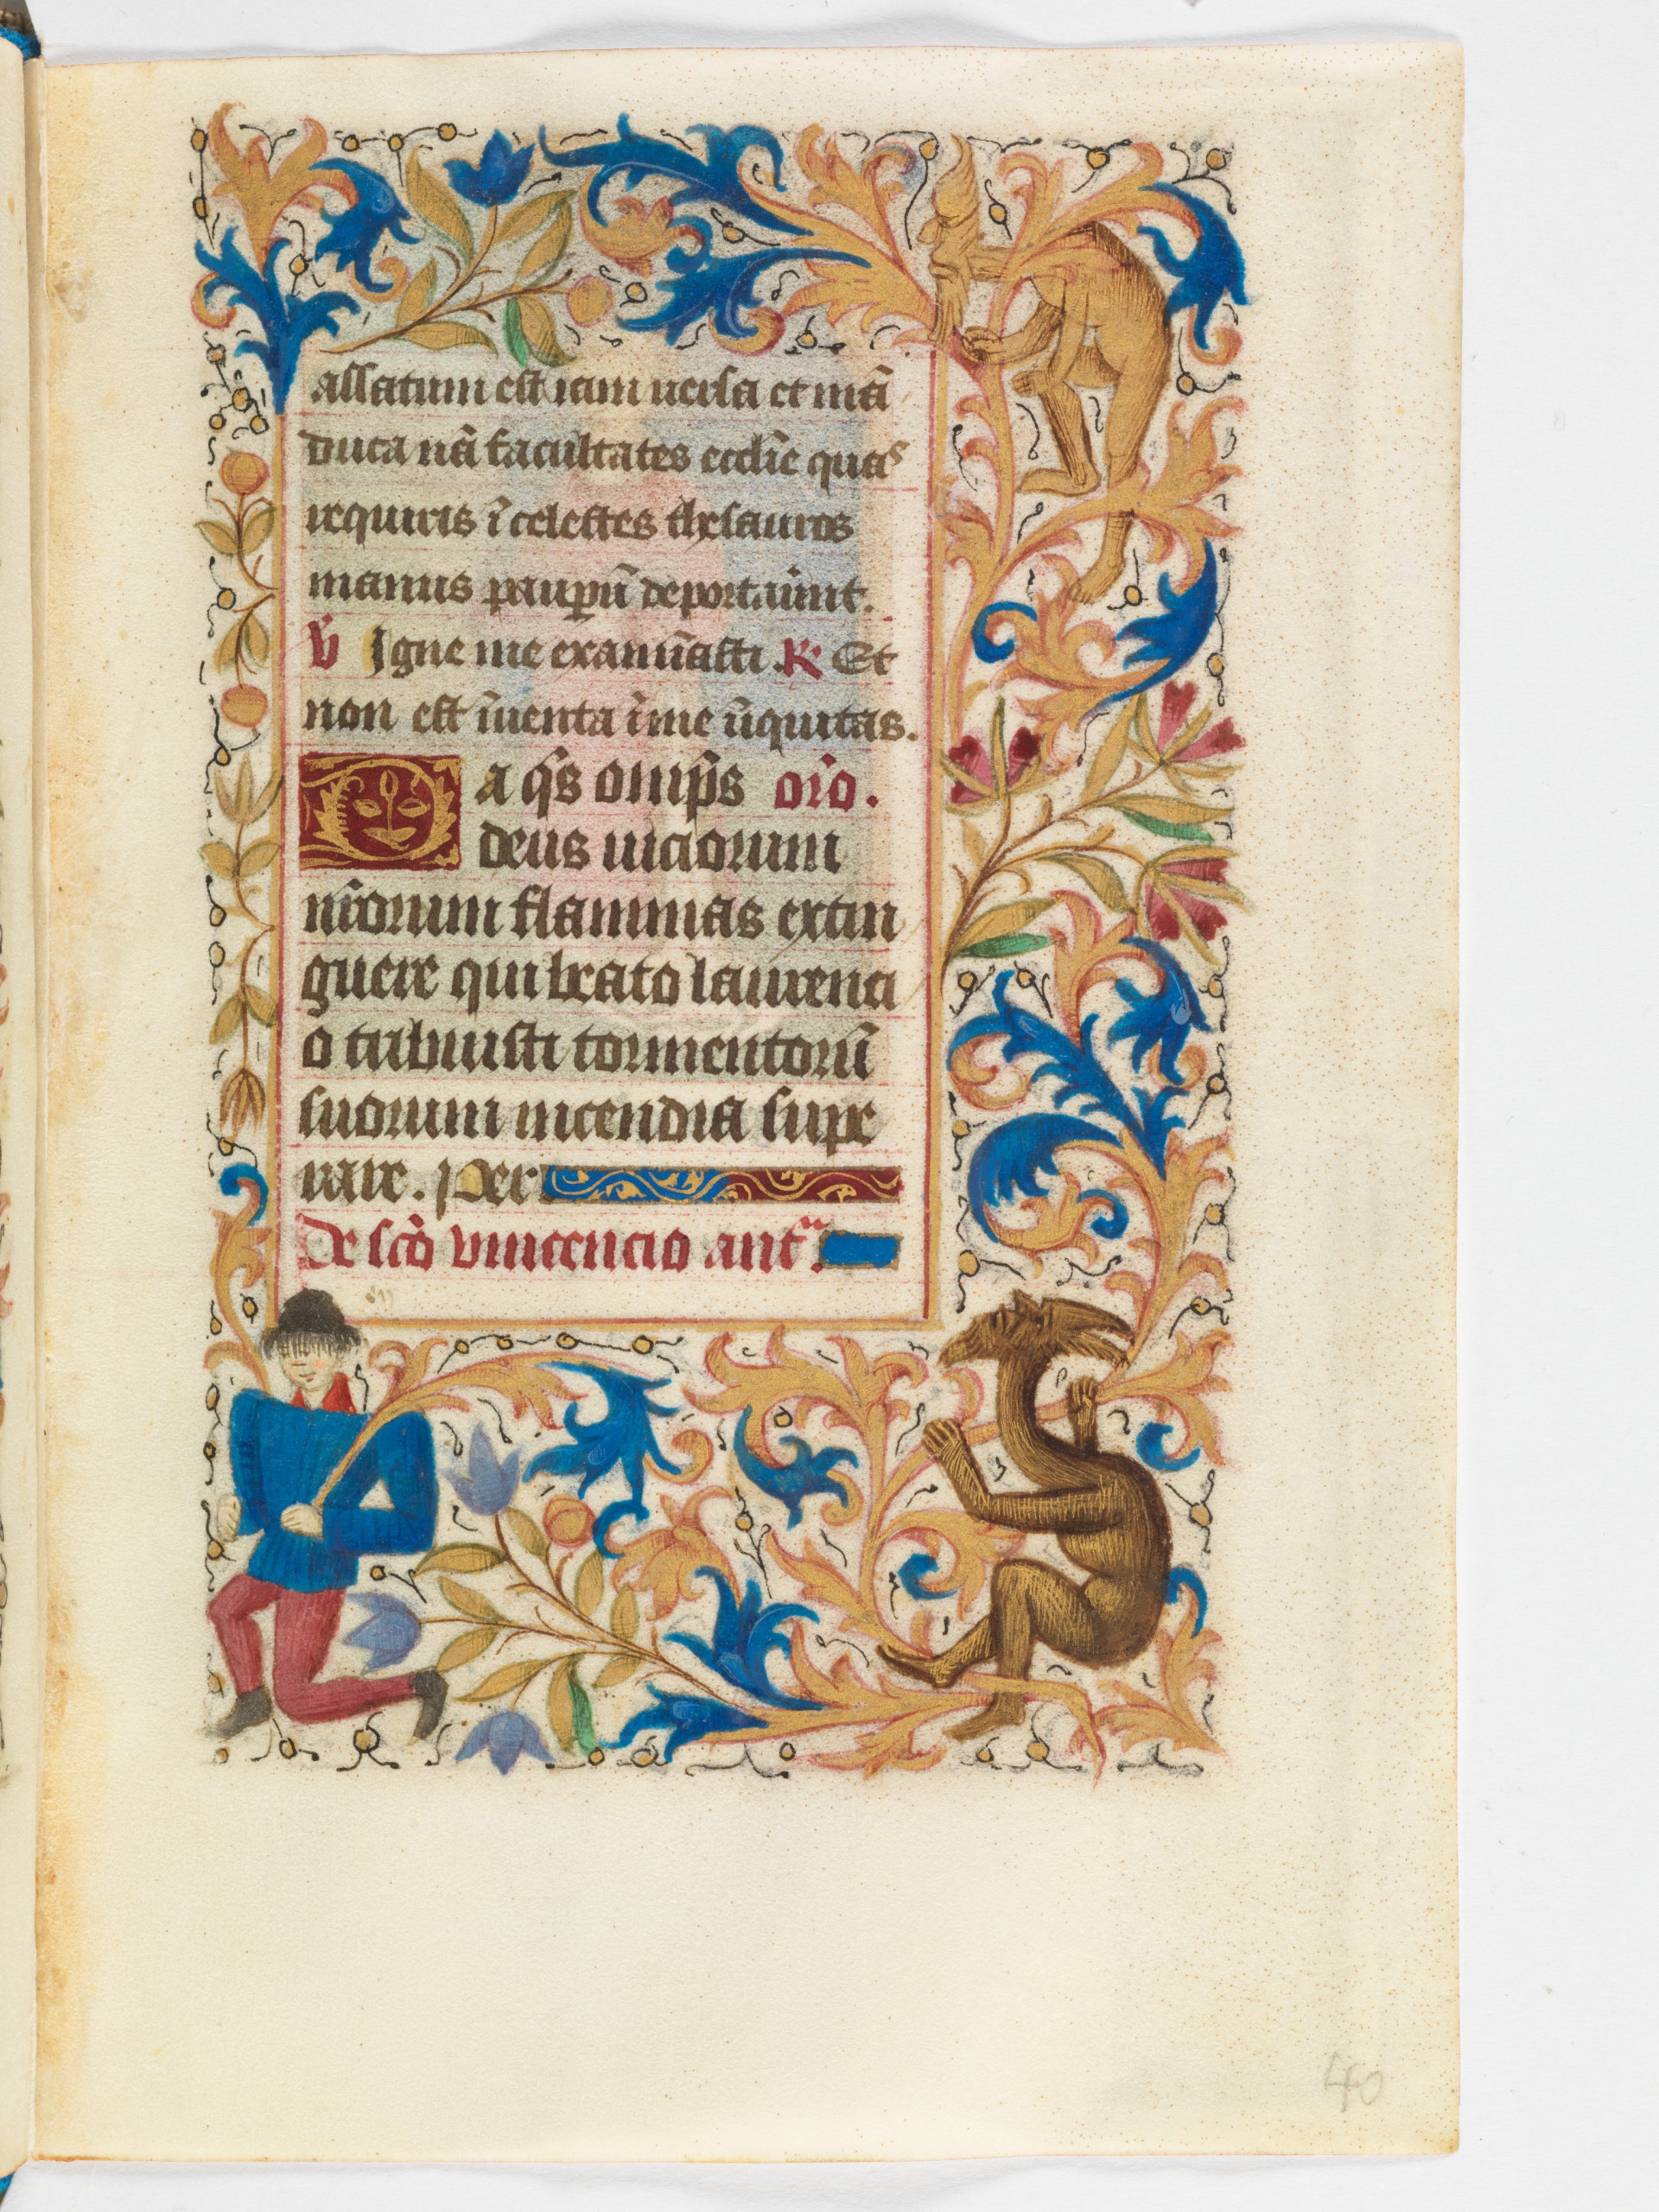 assatum est iam versa et mā
duca nā facultates eccl̄ie quas
requiris ī celestes thesauros
manus paup̄ū deportav̄unt.
v̄ Igne me examīasti. R̸ Et
non est īventa ī me īiquitas.
Da q̄s omp̄s or̄o.
deus viciorum
nr̄orum flammas extin
guere qui beato laurenci
o tribuisti tormentorū
suorum incendia supe
rare. Per
De sc̄o vincencio ant̄a.
40